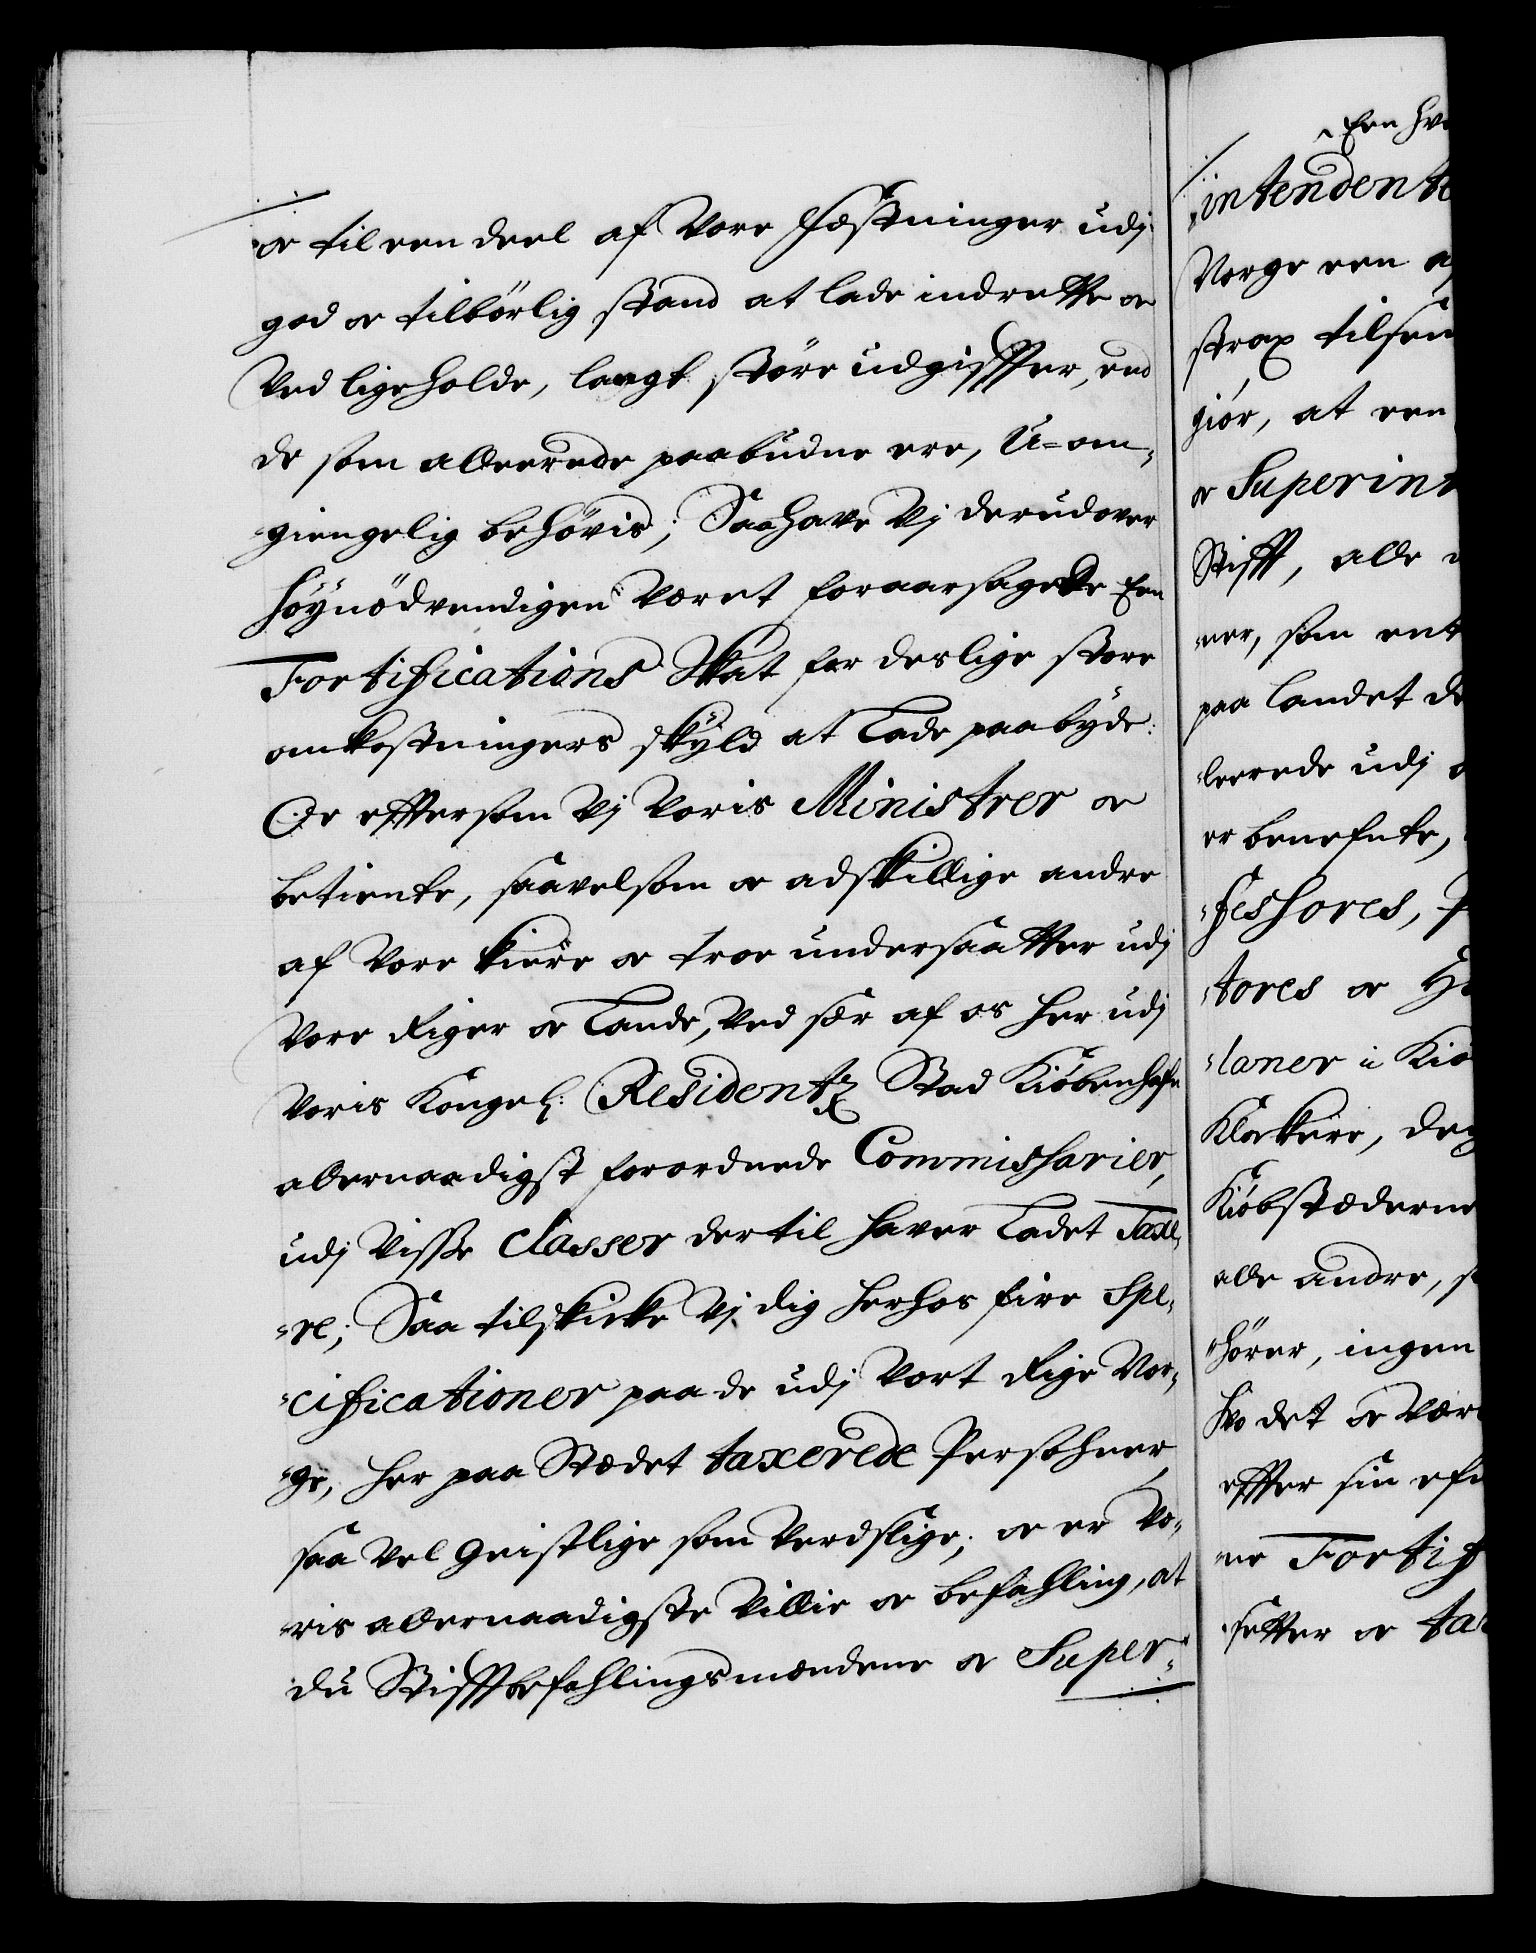 oc til een deel af Vore Fæstninger udj
god oc tilbörlig stand at lade indrette oc
Ved ligeholde, langt störe udgiffter, end
de som allereede paabudne ere, U=om„
giengelig behövis; Saa have Vj derudover
höynödvendigen Været foraarsagede Een
Fortifications Skat for deslige store
omkostningers skyld at Lade paabyde:
Oc effersom Vj Voris Ministrer oc
betiente, saavelsom oc adskillige andre
af Vore kiere oc troe undersaatter udj
Vore Riger oc Lande, Ved sær af os her udj
Voris Kongel: Residentz Stad Kiöbenhafn
allernaadigst forordnede Commissarier,
udj Visse Classer dertil haver Ladet Taxe„
„re; Saa tilskicke Vj dig herhos fire Spe„
„cificationer paa de udj Vort Rige Nor„
„ge, her paa Stædet taxerede Persohner
saa Vel Geistlige som Verdslige; oc er Vo„
„ris allernaadigste Villie oc befahling, at
du Stifftbefahlingsmændene oc Super„
Een hve
intendente
Norge een a
strax tilsen
giör, at een
oc Superint
Stifft, alle
„ner, som ent
paa Landet de
„leerede udj
er benefnte,
„fessores, P
„tores oc H
„laner i Kiö
Klockere, deg
Kiöbstæderne
alle andre, s
„hörer, ingen
hvo det oc Være
effter sin efn
„ne Fortif
„setter oc tax